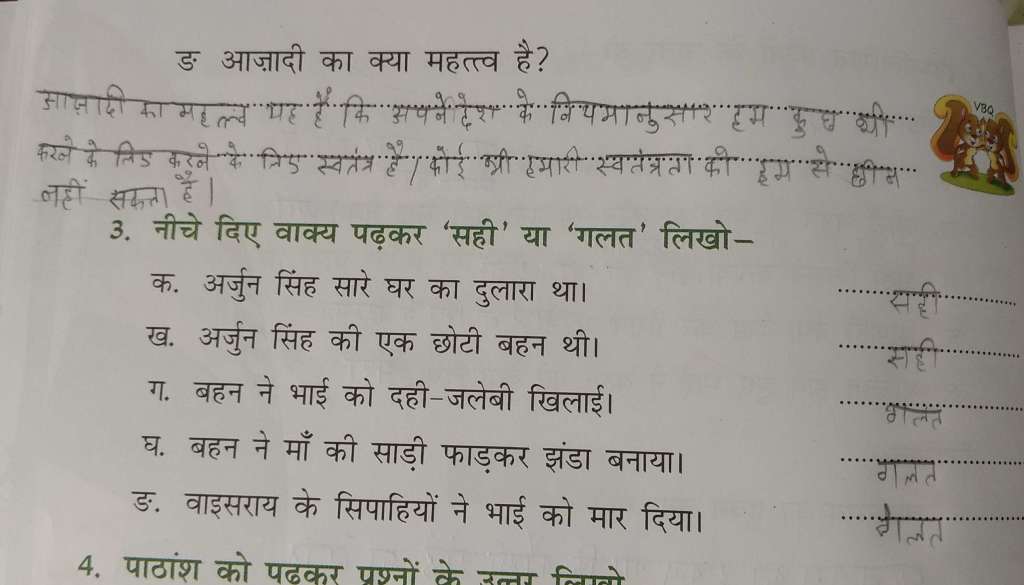 ङ आज़ादी का क्या महत्त्व है?
आज़ादी का महत्त्व यह है कि अपने देश के नियमानुसार हम कुछ भी
VBQ
करने के लिए करने के लिए स्वतंत्र है / कोई भी हमारी स्वतंत्रता को हम से छीन
नहीं सकता है |
3. नीचे दिए वाक्य पढ़कर 'सही' या 'गलत' लिखो–
क. अर्जुन सिंह सारे घर का दुलारा था। सही
ख. अर्जुन सिंह की एक छोटी बहन थी। सही
ग. बहन ने भाई को दही-जलेबी खिलाई। गलत
घ. बहन ने माँ की साड़ी फाड़कर झंडा बनाया। गलत
ङ. वाइसराय के सिपाहियों ने भाई को मार दिया। गलत
4. पाठांश को पढ़कर प्रश्नों के उत्तर लिखो